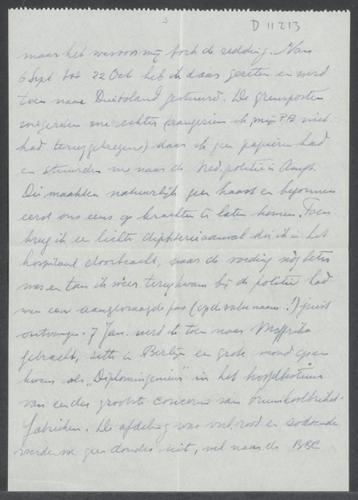 D 11213
maar het was voor mij toch de redding. Van
6 Sept tot 22 Oct heb ik daar gezeten en werd
toen naar Duitsland gestuurd. De grensposten
weigerden me echter (aangezien ik mijn P.B. niet
had teruggekregen) daar ik geen papieren had
en stuurden me naar de Ned. politie in
Die maakten natuurlijk geen haast en begonnen
eerst ons eens op krachten te laten komen. Toen
kreeg ik een lichte diphterieaanval die ik in het
hospitaal doorbracht, waar de voeding nog beter
was en toen ik weer terugkwam bij de politie had
men een aangevraagde pas (op de valse naam!) juist
ontvangen. 7 Jan. werd ik toen naar
gebracht, zette in Berlijn en grote mond open
kwam als "Diplomingenieur" in het hoofdkantoor
van een der grootste concerns van bruinkoolbriket-
fabrieken. De afdeling was vuurrood en zodoende
werden we geen donder niet, wel naar de BBC